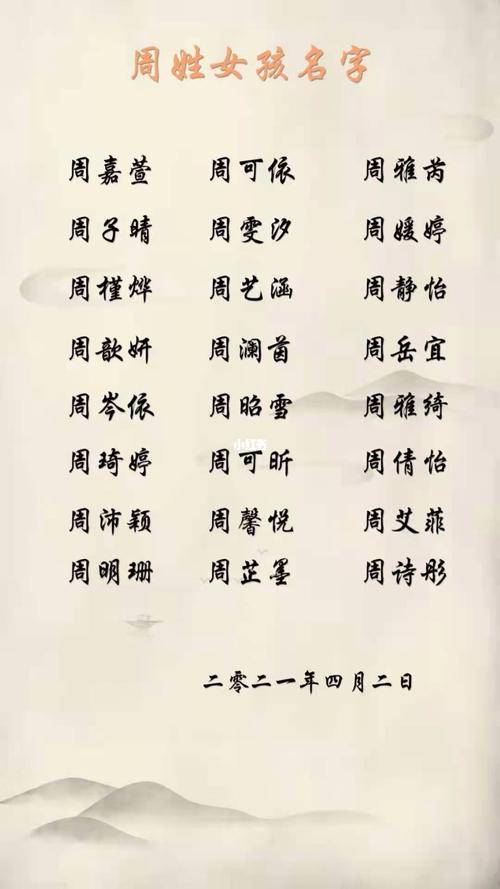 周姓女孩名字
周嘉萱 周可依 周雅芮
周子晴 周雯汐 周媛婷
周槿烨 周艺涵 周静怡
周歆妍 周澜茵 周岳宜
周岑依 周昭雪 周雅绮
小红书
周琦婷 周可昕 周倩怡
周沛颖 周馨悦 周艾菲
周明珊 周芷墨 周诗彤
二零二一年四月二日